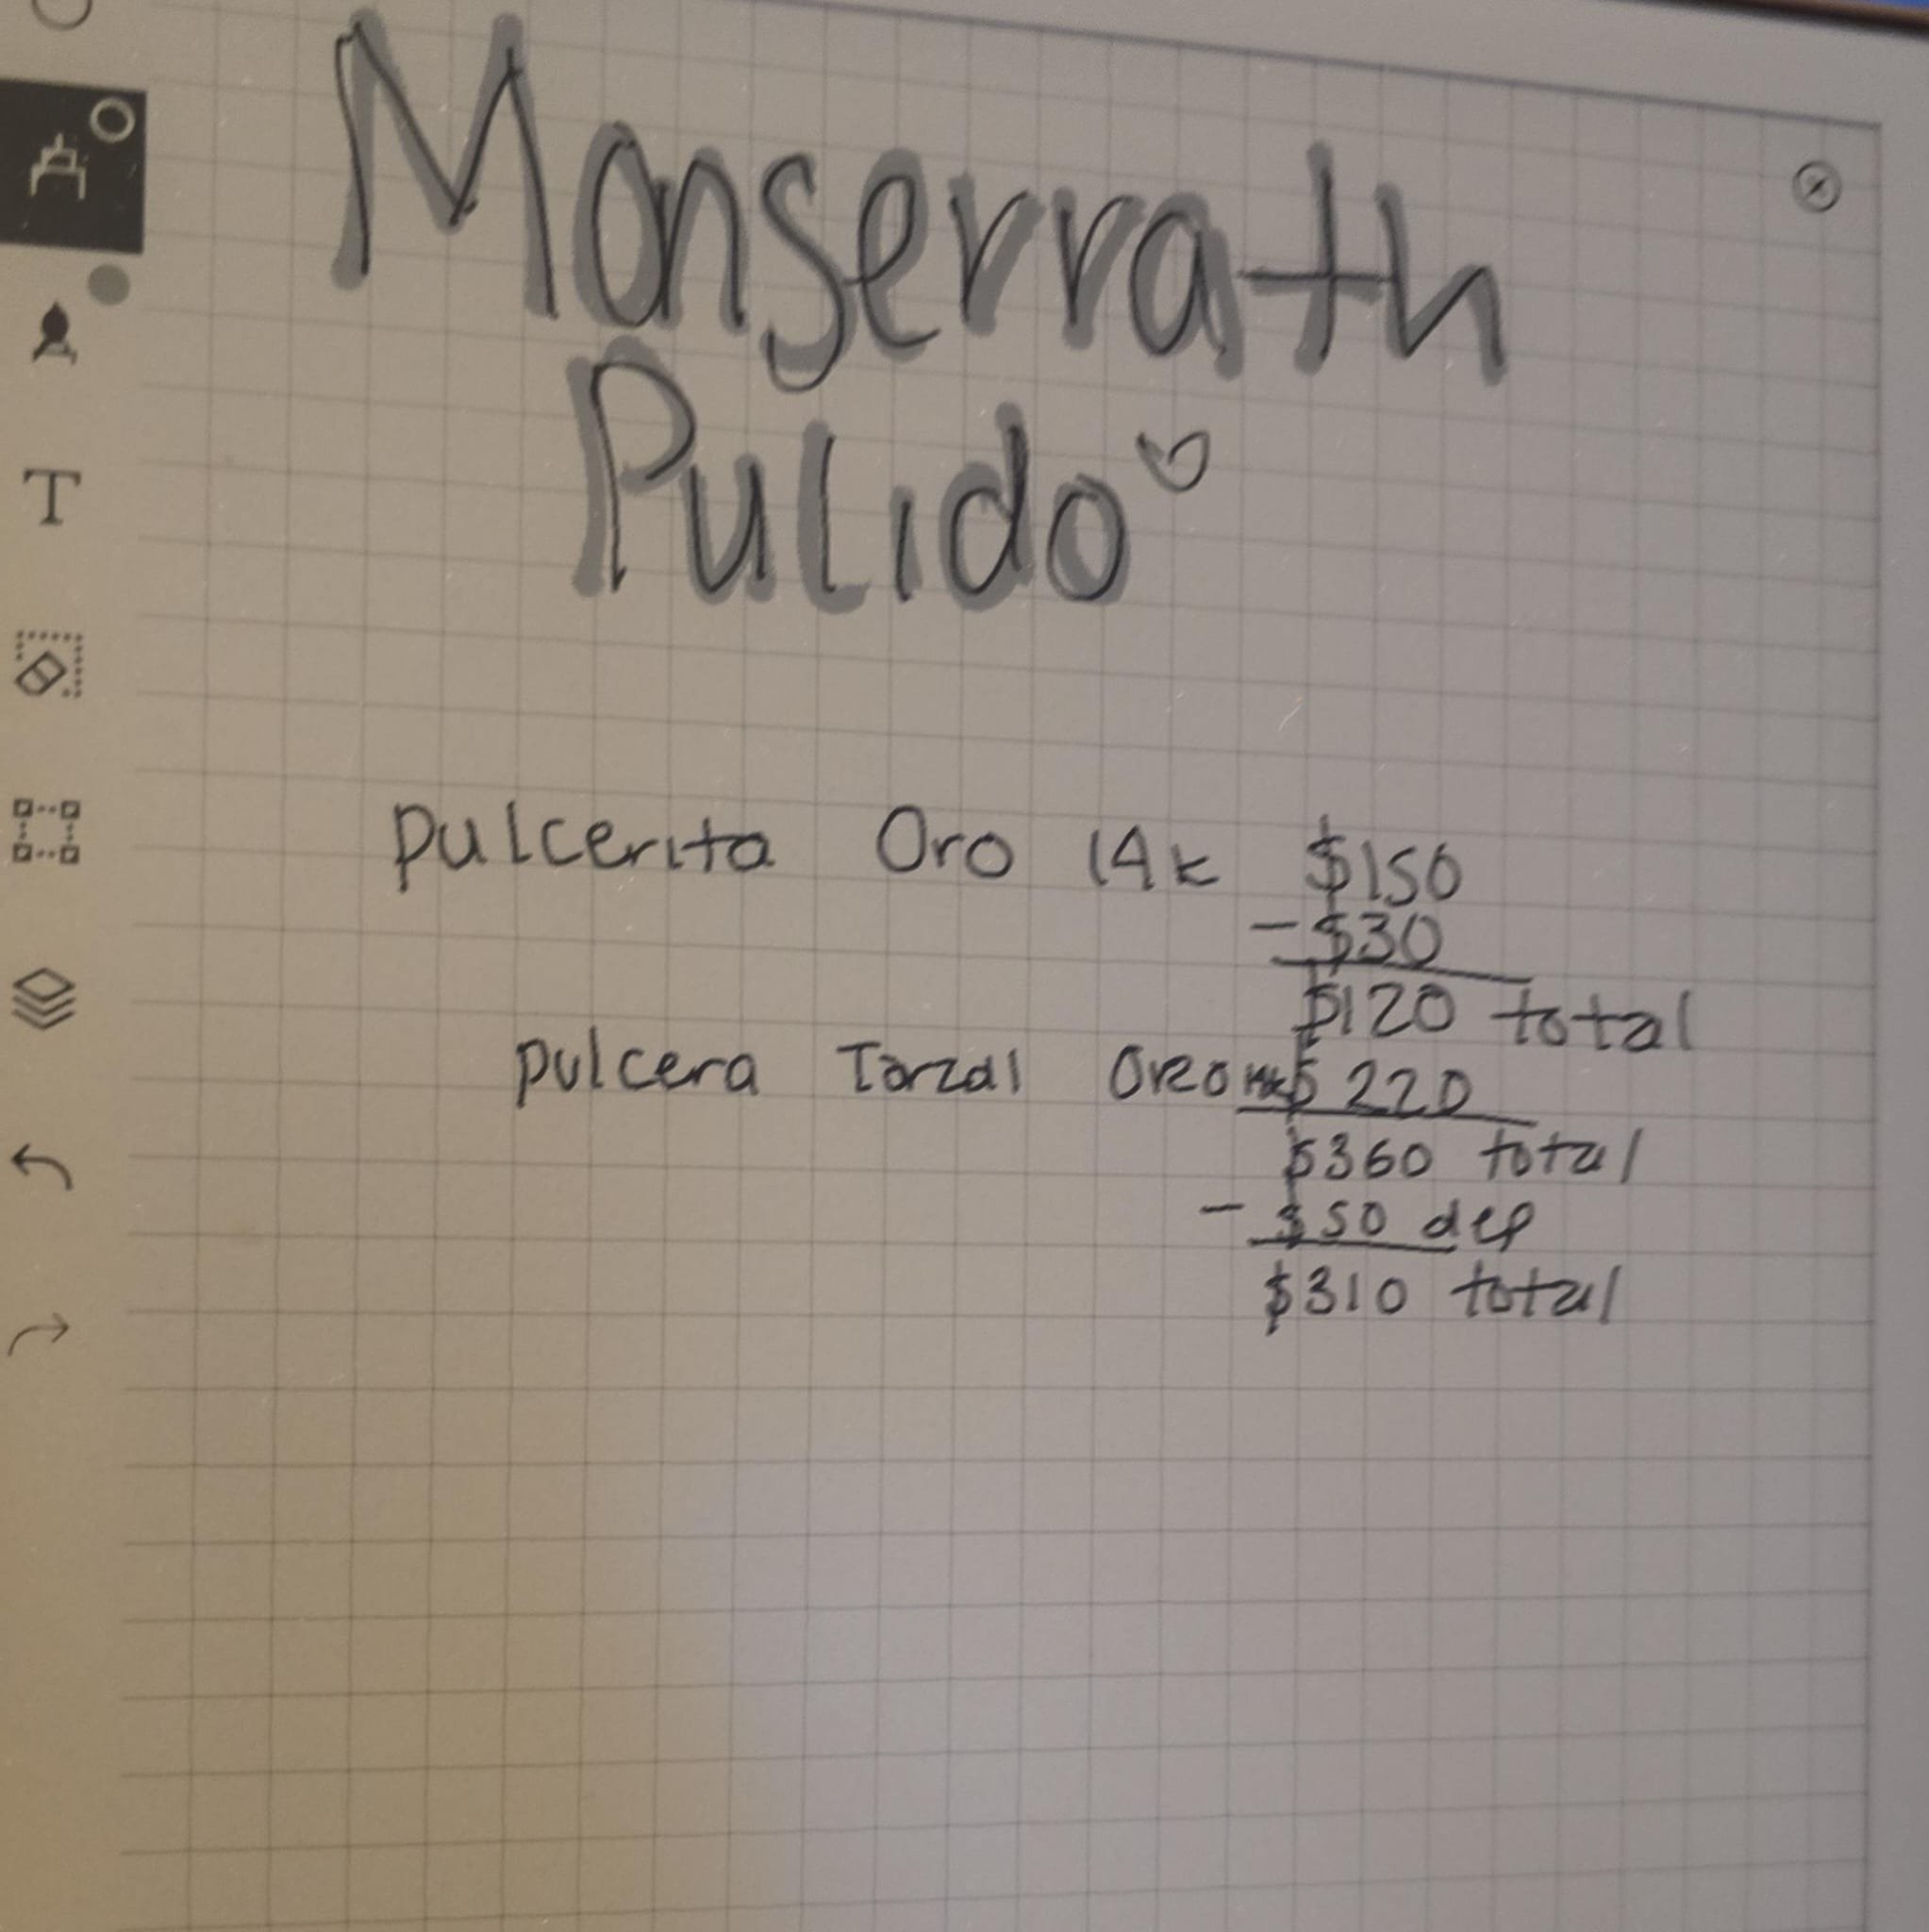 Monserrath
Pulido
pulcerita Oro 14k $150
- $30
$120 total
pulcera Torzal Oro 14k $ 220
$360 total
- $50 dep
$310 total